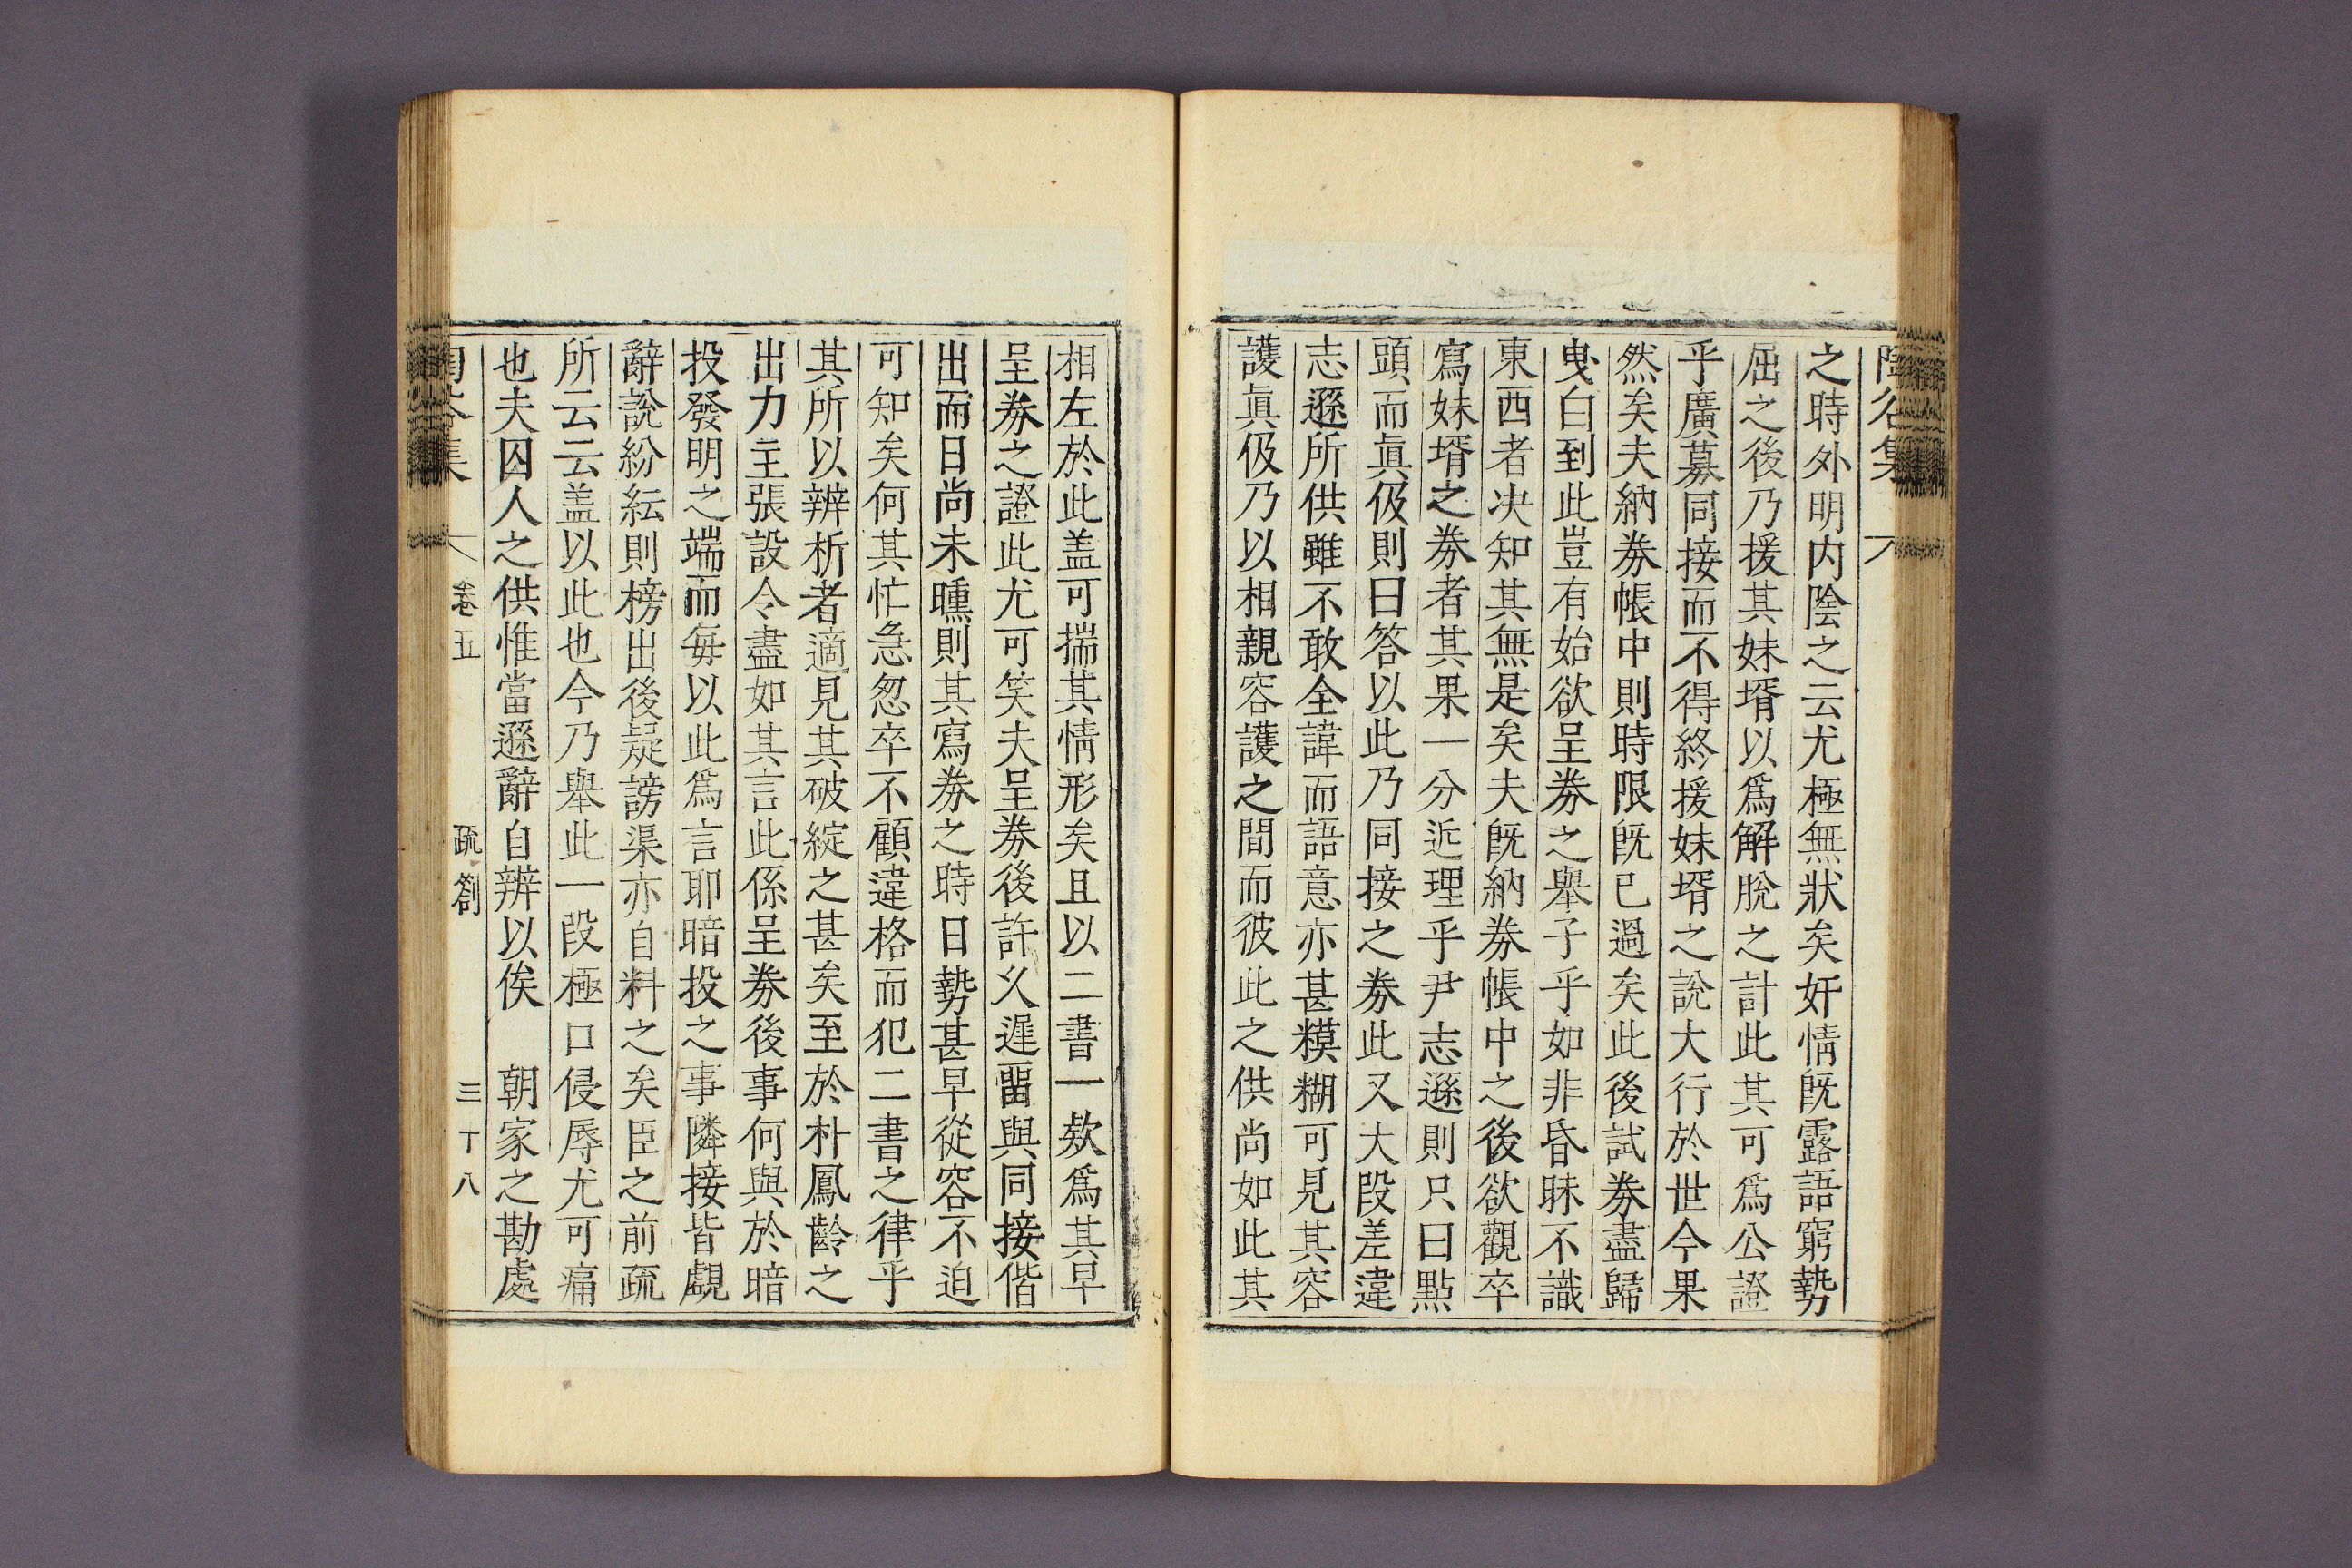 之時外明内陰之云尤極無狀矣奸情旣露語窮勢
屈之後乃援其妹壻以爲解脫之計此其可爲公證
乎廣募同接而不得終援妹壻之說大行於世今果
然矣夫納券帳中則時限旣已過矣此後試券盡歸
曳白到此豈有始欲呈券之擧子乎如非昏昧不識
東西者决知其無是矣夫旣納券帳中之後欲觀卒
寫妹壻之券者其果一分近理乎尹志遜則只曰點
頭而眞伋則曰答以此乃同接之券此又大段差違
志遜所供雖不敢全諱而語意亦甚糢糊可見其容
護眞伋乃以相親容護之間而彼此之供尚如此其
相左於此盖可揣其情形矣且以二書一欵爲其早
呈券之證此尤可笑夫呈券後許久遲留與同接偕
出而日尚未曛則其寫券之時日勢甚早從容不迫
可知矣何其忙急怱卒不顧違格而犯二書之律乎
其所以辨析者適見其破綻之甚矣至於朴鳳齡之
出力主張設令盡如其言此係呈券後事何與於暗
投發明之端而每以此爲言耶暗投之事隣接皆覷
辭說紛紜則榜出後疑謗渠亦自料之矣臣之前疏
所云云盖以此也今乃擧此一段極口侵辱尤可痛
也夫囚人之供惟當遜辭自辨以俟　朝家之勘處
卷五　疏劄　三十八